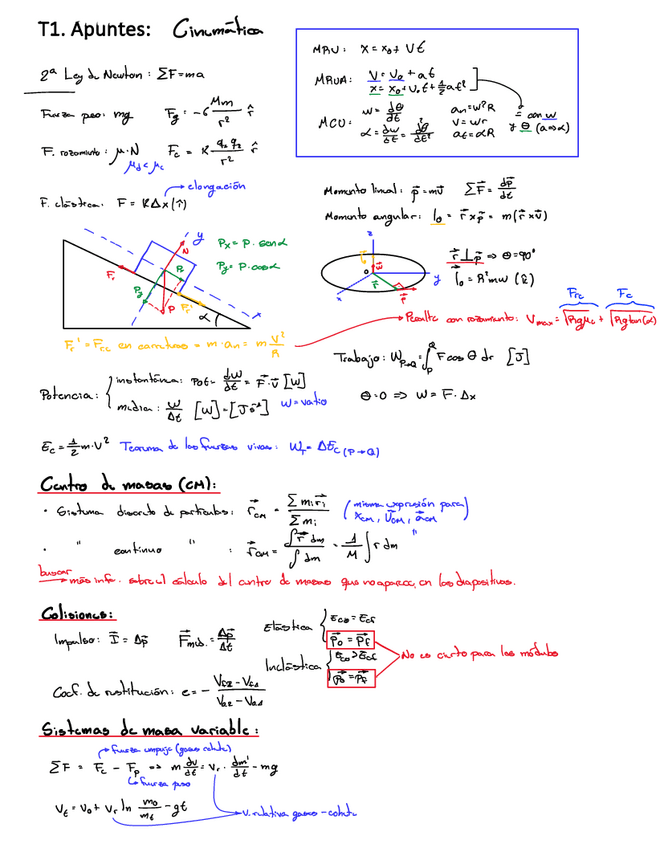 T1. Apuntes: Cinemática
MRU: x = x₀ + vt
MRUA: v = v₀ + at
x = x₀ + v₀t + ½at²
MCU: w = dθ/dt aₙ = w²R
α = dw/dt = d²θ/dt² v = wr aₜ = αR
= con w y θ (a => α)
2ª Ley de Newton: ΣF = ma
Fuerza peso: mg F_g = -G Mm/r² r̂
F. rozamiento: μ·N F_c = K q₁q₂/r² r̂
μ_d < μ_e
elongación
F. elástica: F = KΔx(↑)
Momento lineal: p⃗ = mv⃗ ΣF⃗ = dp⃗/dt
Momento angular: l₀ = r⃗ × p⃗ = m(r⃗ × v⃗)
y N Pₓ = P·senα
P_y = P·cosα
Fᵣ P_y Pₓ P Fᵣ' α x
z w⃗ 0 r⃗ y x
r⃗ ⊥ p⃗ => θ = 90º
l⃗₀ = R²mw (k̂)
Peralte con rozamiento: V_max = √Rgμₑ + √Rg tan(α)
Fᵣ' = F_rc en carreteras = m·aₙ = m v²/R
Trabajo: W_P→Q = ∫_P^Q F cosθ dr [J]
θ = 0 => W = F·Δx
Potencia: instantánea: Pot = dW/dt = F⃗·v⃗ [W]
media: W/Δt [W] = [Js⁻¹] W = vatio
E_c = ½m·v² Teorema de las fuerzas vivas: W_T = ΔE_c (P→Q)
Centro de masas (CM):
· Sistema discreto de partículas: r⃗_CM = Σmᵢr⃗ᵢ / Σmᵢ (misma expresión para x_CM, v⃗_CM, a⃗_CM)
· " continuo " : r⃗_CM = ∫r⃗ dm / ∫dm = 1/M ∫ r dm "
buscar más info. sobre el cálculo del centro de masas que no aparece en las diapositivas.
Colisiones:
Impulso: I⃗ = Δp⃗ F⃗_med. = Δp⃗/Δt
Elástica E_c0 = E_cf
p⃗₀ = p⃗_f
Inelástica E_c0 > E_cf
p⃗₀ = p⃗_f
No es cierto para los módulos
Coef. de restitución: e = - (V_f2 - V_f1)/(V_02 - V_01)
Sistemas de masa variable:
fuerza empuje (gases cohete)
ΣF = F_e - F_p => m dv/dt = vᵣ · dm'/dt - mg
fuerza peso
V_t = V₀ + Vᵣ ln m₀/m_t - gt
V. relativa gases-cohete